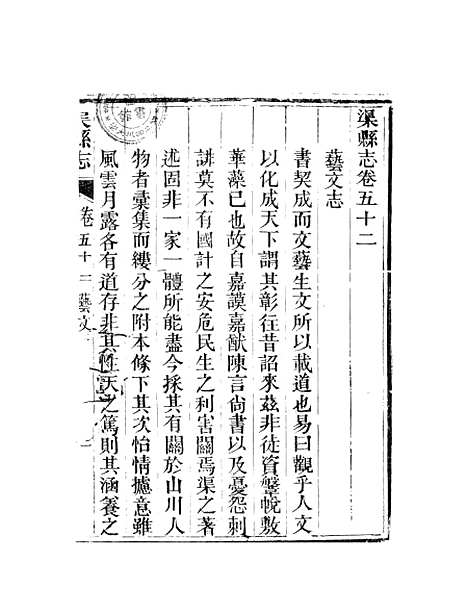 渠縣志卷五十二
藝文志
書契成而文藝生文所以載道也易曰觀乎人文
以化成天下謂其彰往昔詔來茲非徒資鞶帨敷
華藻已也故自嘉謨嘉猷陳言尚書以及憂怨刺
誹莫不有國計之安危民生之利害關焉渠之著
述固非一家一體所能盡今採其有關於山川人
物者彙集而縷分之附本條下其次怡情攄意雖
風雲月露各有道存非其性天之篤則其涵養之
縣志
卷五十二藝文
一